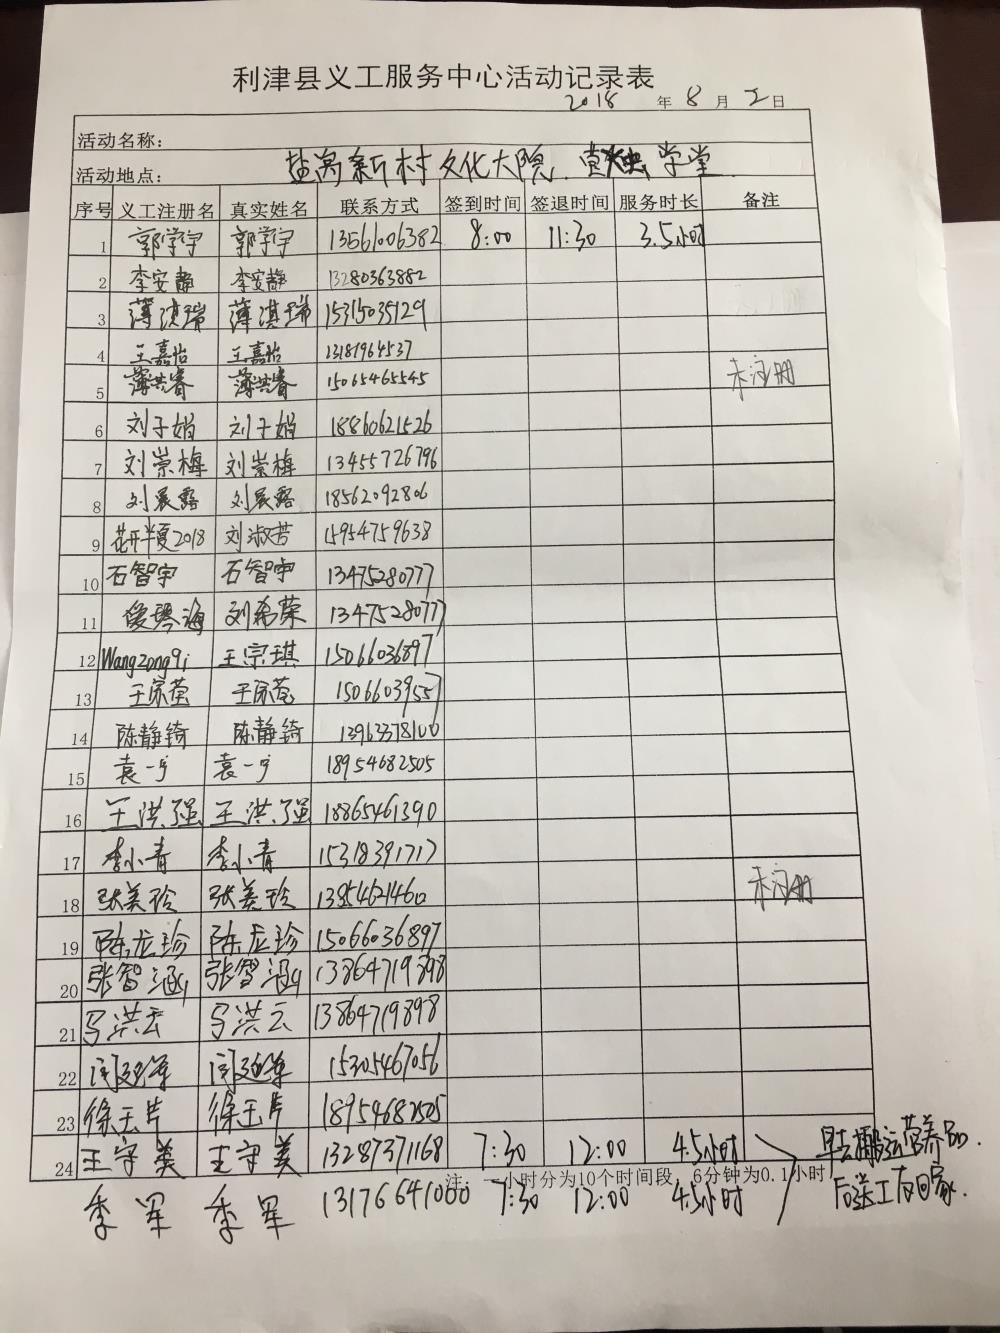 利津县义工服务中心活动记录表
2018 年 8 月 2 日
活动名称：
活动地点： 盐窝新村文化大院、萤火虫学堂
序号 义工注册名 真实姓名 联系方式 签到时间 签退时间 服务时长 备注
1 郭学宇 郭学宇 13561006382 8:00 11:30 3.5小时
2 李安静 李安静 13280363882
3 薄淇瑞 薄淇瑞 15315035129
4 王嘉怡 王嘉怡 13181964537
5 薄洪睿 薄洪睿 15065465545 未注册
6 刘子娟 刘子娟 18860621526
7 刘崇梅 刘崇梅 13455726796
8 刘晨露 刘晨露 18562092806
9 花开半夏2018 刘淑芳 15954759638
10 石智宇 石智宇 13475280777
11 爱琴海 刘希荣 13475280777
12 Wangzongqi 王宗琪 15066036897
13 王家苞 王家苞 15066039557
14 陈静锜 陈静锜 13963378100
15 袁一宁 袁一宁 18954682505
16 王洪强 王洪强 18865461390
17 李小青 李小青 15318391717
18 张美玲 张美玲 13954621460 未注册
19 陈龙珍 陈龙珍 15066036897
20 张智涵 张智涵 13864719898
21 马洪云 马洪云 13864719898
22 闫延军 15305467056
23 徐玉片 徐玉片 18954682505
24 王守美 王守美 13287371168 7:30 12:00 4.5小时 早去搬运营养品
注：一小时分为10个时间段，6分钟为0.1小时
季军 季军 13176641000 7:30 12:00 4.5小时 后送工友回家.